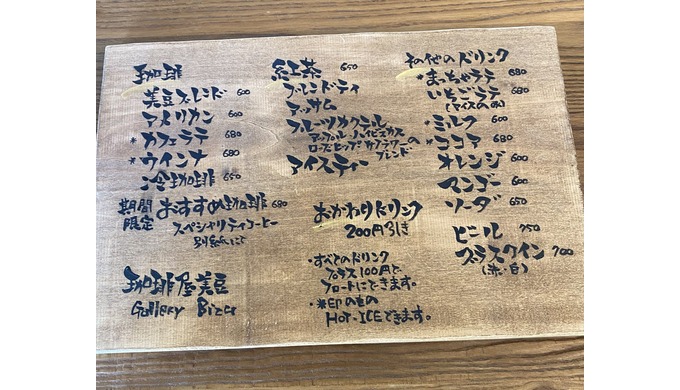 珈琲
美豆ブレンド 600
アメリカン 600
*カフェラテ 680
*ウインナ 680
冷珈琲 650
期間限定 おすすめ珈琲 680
スペシャリティコーヒー
別紙にて
珈琲屋美豆
Gallery Bizu
紅茶 650
ブレンドティ
アッサム
フルーツカクテル
アップル ハイビスカス
ローズヒップ カリフラワーの
ブレンド
アイスティー
おかわりドリンク
200円引き
・すべてのドリンク
プラス100円で
フロートにできます。
・*印のもの
HOT・ICEできます。
その他のドリンク
*まっちゃラテ 680
いちごラテ 680
(アイスのみ)
*ミルク 600
*ココア 680
オレンジ 600
マンゴー 600
ソーダ 650
ビール 750
グラスワイン 700
(赤・白)